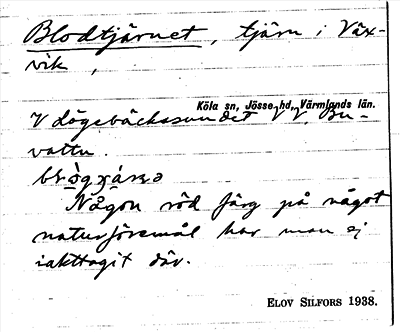 Blodtjärnet, tjärn i Växvik,
Köla sn, Jösse hd, Värmlands län.
V Buvattn.
Någon röd färg på något
naturföremål har man ej
iakttagit där.
ELOV SILFORS 1938.